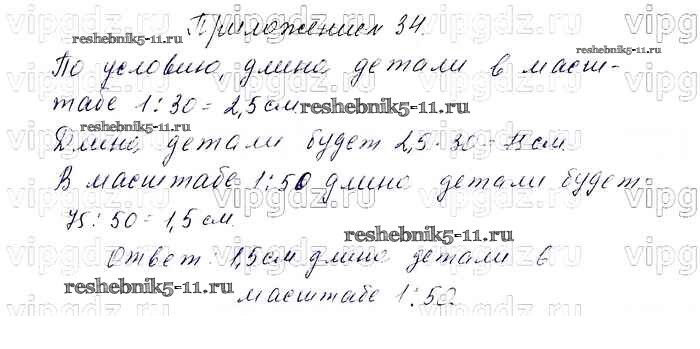 Приложение 34.
По условию, длина детали в масш-
табе 1:30 = 2,5 см
Длина детали будет 2,5 · 30 = 75 см.
В масштабе 1:50 длина детали будет:
75 : 50 = 1,5 см.
Ответ: 1,5 см длина детали в
масштабе 1:50.
reshebnik5-11.ru
reshebnik5-11.ru
reshebnik5-11.ru
reshebnik5-11.ru
reshebnik5-11.ru
reshebnik5-11.ru
vipgdz.ru